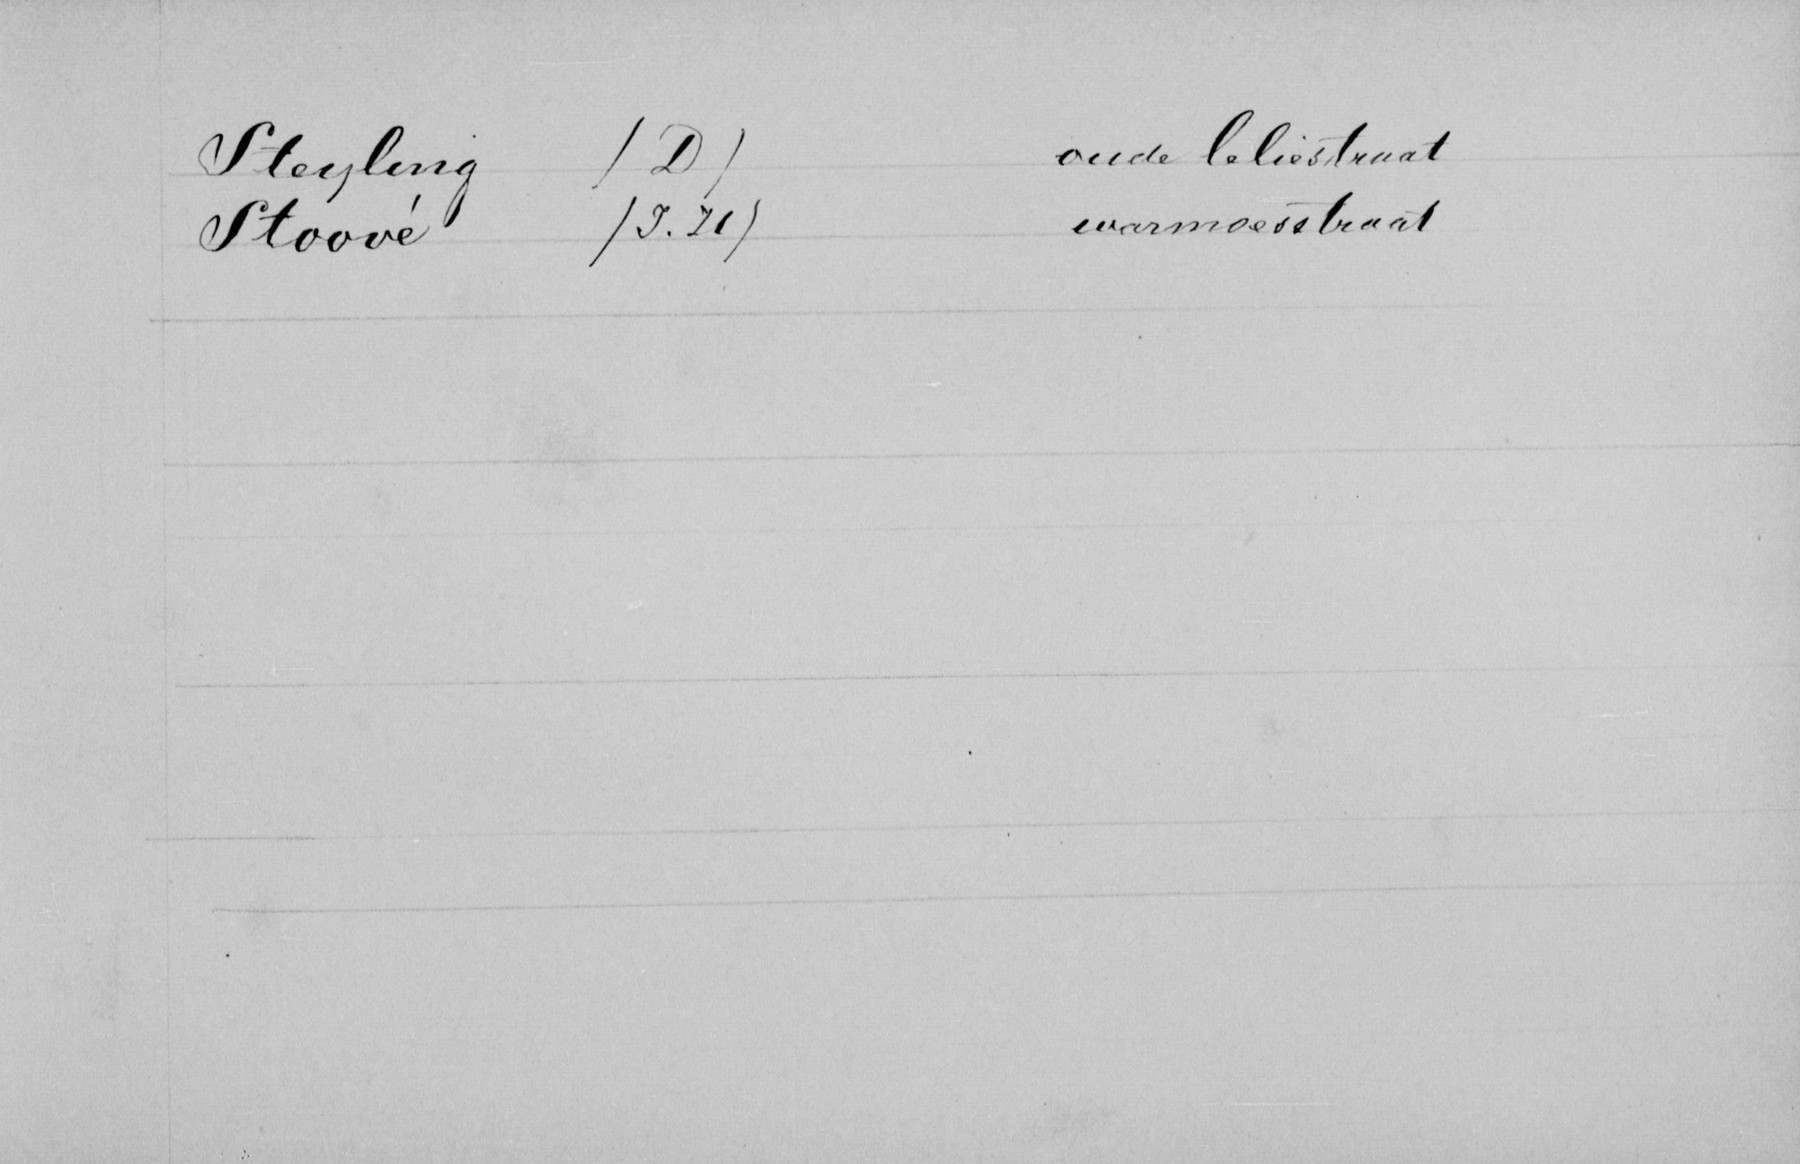 Steyling (D) oude leliestraat
Stoové (J. H) warmoesstraat